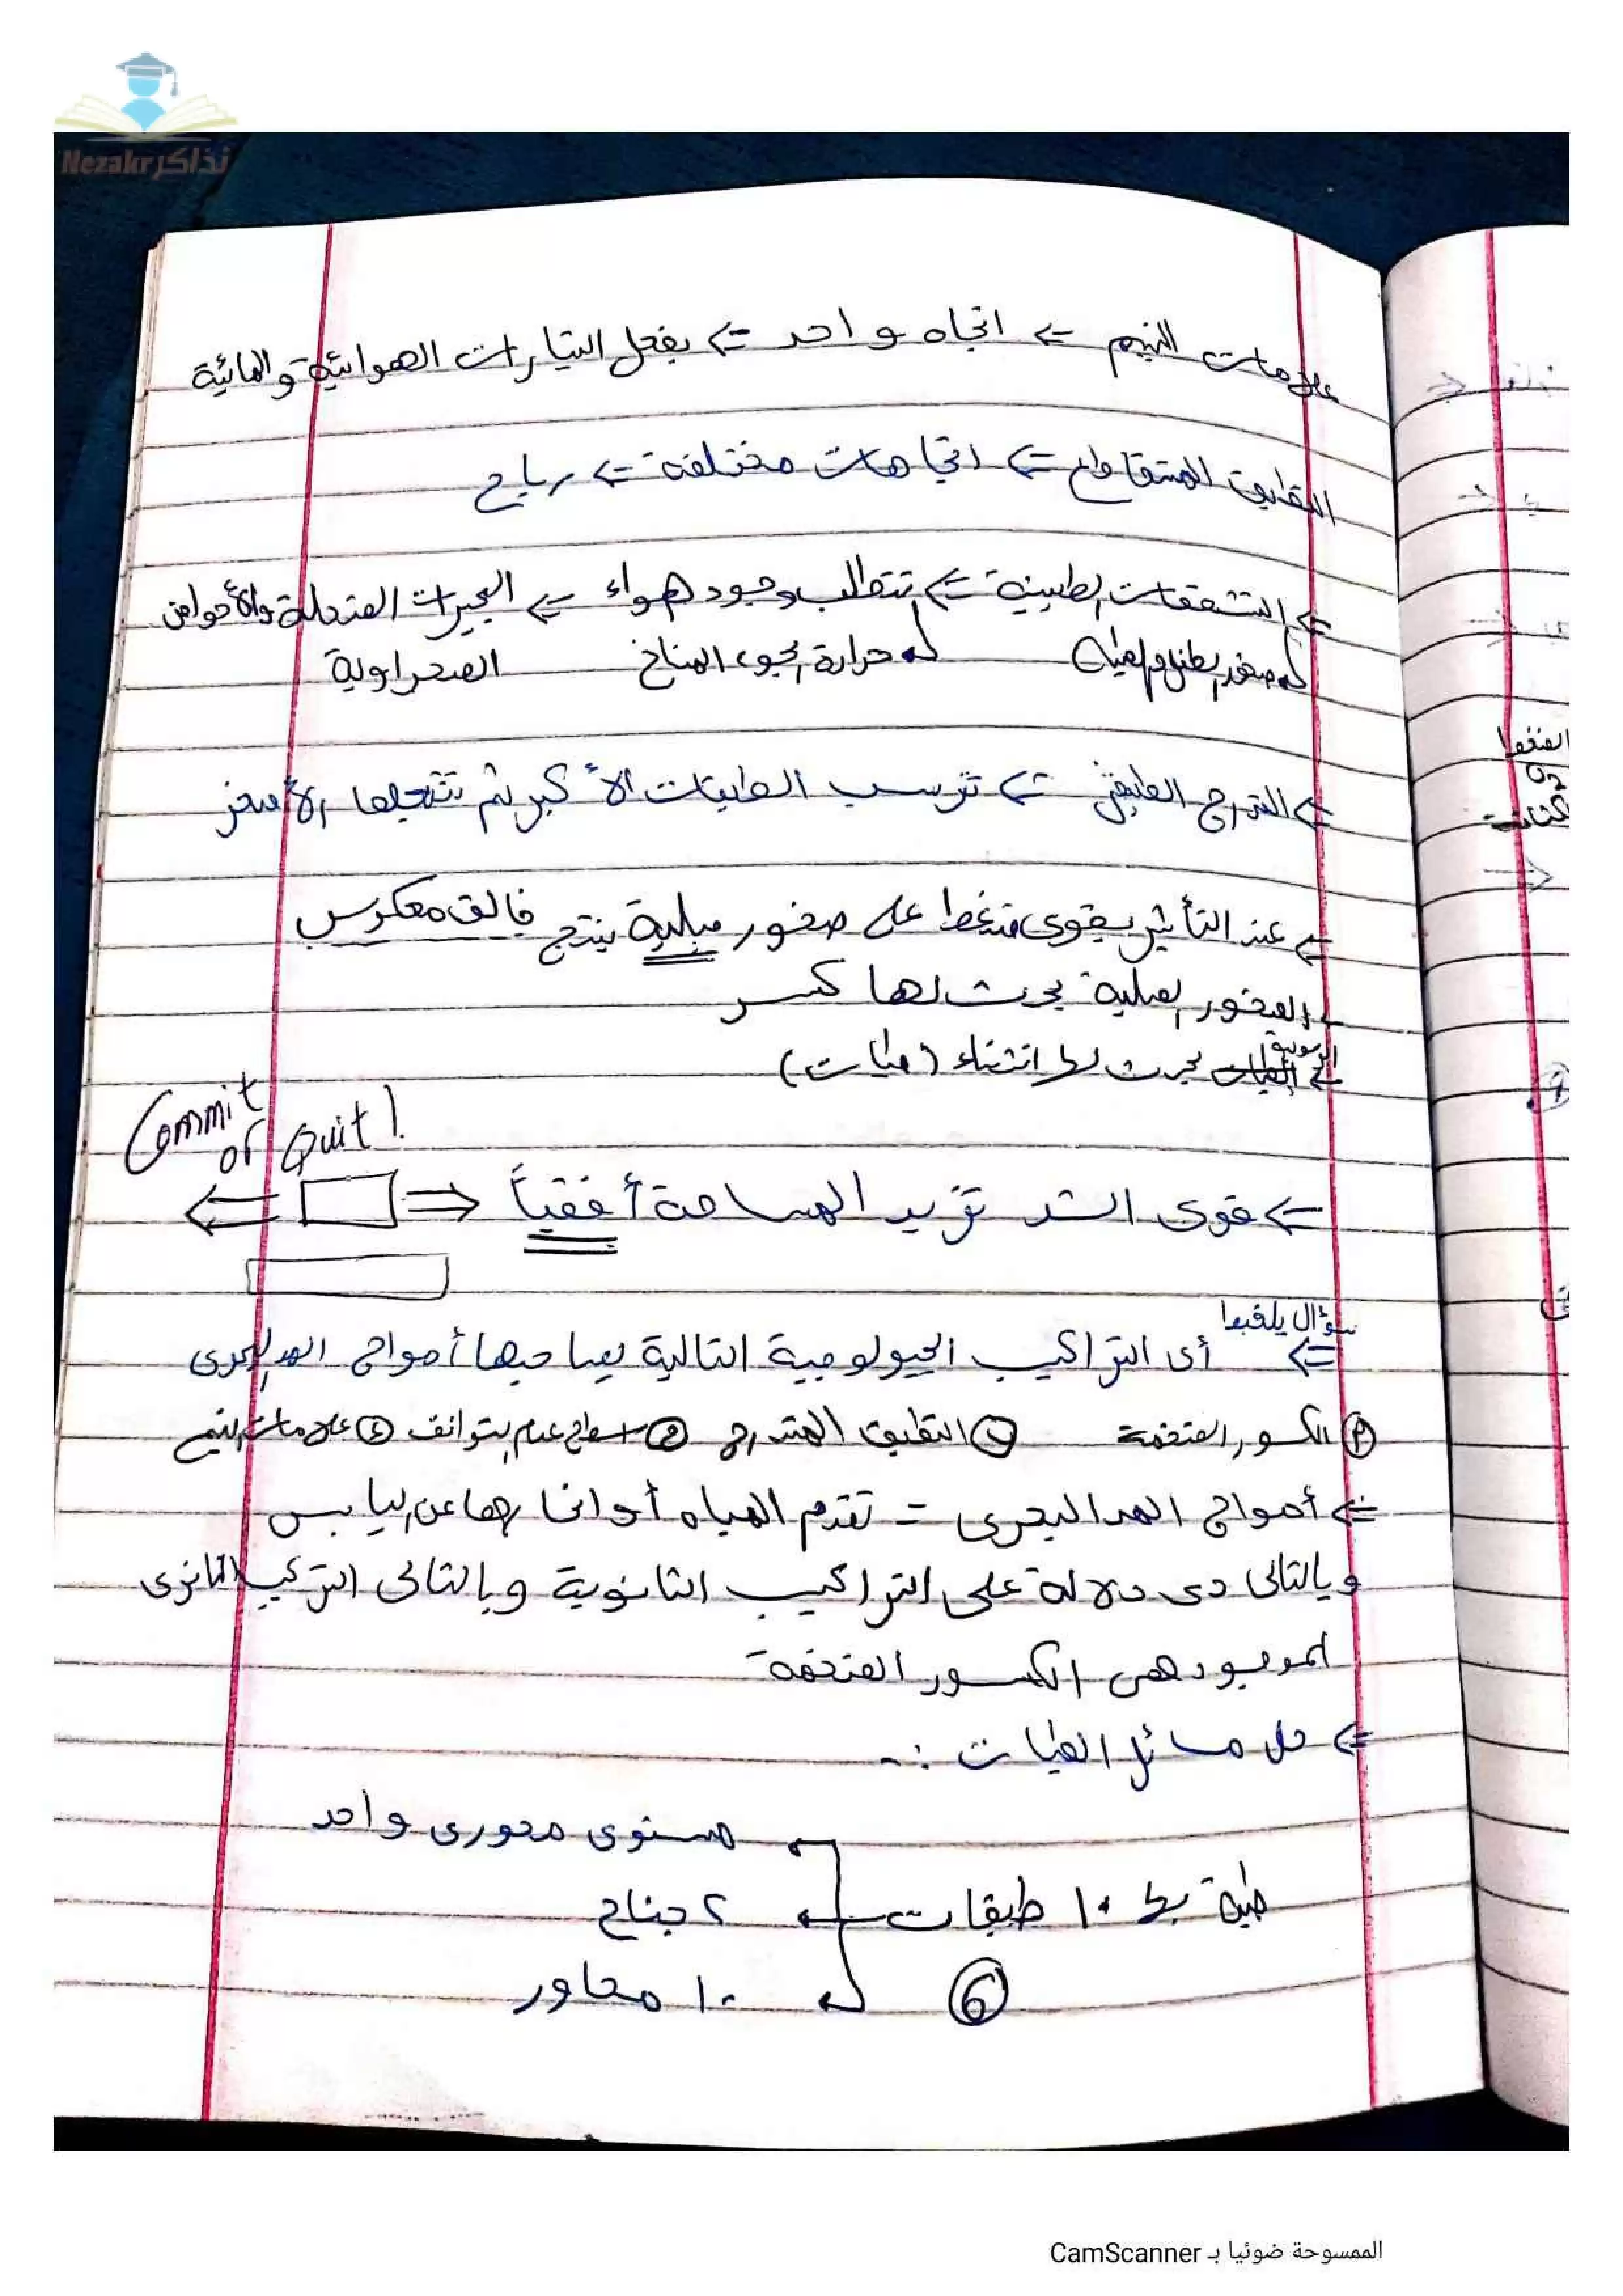 نذاكر Nezakr
علامات النيم ⇐ اتجاه واحد ⇐ بفعل التيارات الهوائية والمائية
التطبق المتقاطع ⇐ اتجاهات مختلفة ⇐ رياح
⇐ التشققات الطينية ⇐ تتطلب وجود هواء ⇐ البحيرات الضحلة والأحواض
صخور حرارة الجو، المناخ الصحراوية
⇐ التدرج الطبقي ⇐ ترسب الطبقات الأكبر ثم تتبعها الأصغر
⇐ عند التأثير بقوى ضغط على صخور صلبة ينتج فالق معكوس
الصخور الصلبة يحدث لها كسر
الرسوبية يحدث لها انثناء (طيات)
Commit
or Quit!
⇐ قوى الشد تزيد المساحة أفقياً
سؤال يلخبط
⇐ أى التراكيب الجيولوجية التالية يصاحبها أمواج المد البحرى
أ الكسور الضخمة ب التطبق المتدرج ج سطح عدم التوافق د علامات النيم
⇐ أمواج المد البحرى = تقدم المياه أو انحسارها عن اليابس
وبالتالى دى دلالة على التراكيب الثانوية وبالتالى التركيب الثانوى
الموجود هى الكسور الضخمة
⇐ حل مسائل الطيات :-
مستوى محورى واحد
طية بها ١٠ طبقات ٢ جناح
١٠ محاور
6
الممسوحة ضوئيا بـ CamScanner